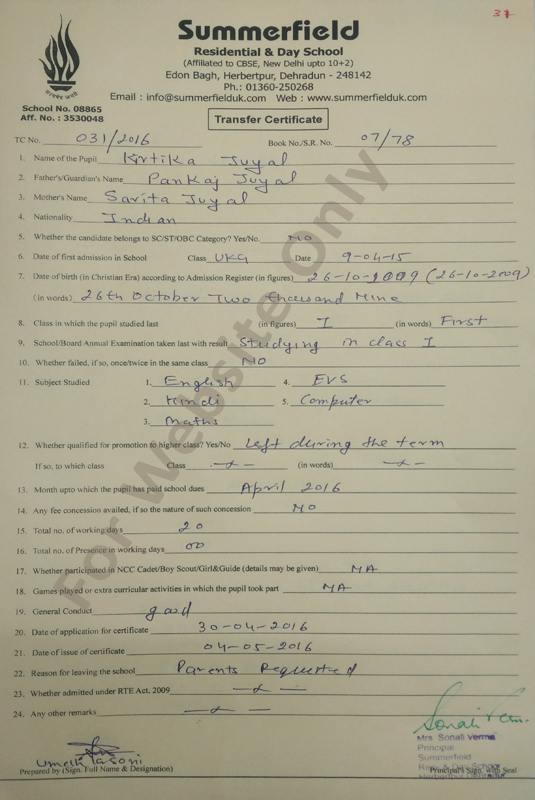 37
Summerfield
Residential & Day School
(Affiliated to CBSE, New Delhi upto 10+2)
Edon Bagh, Herbertpur, Dehradun - 248142
Ph.: 01360-250268
Email : info@summerfielduk.com Web : www.summerfielduk.com
School No. 08865
Aff. No. : 3530048
Transfer Certificate
TC No. 031/2016 Book No./S.R. No. 07/78
1. Name of the Pupil Kirtika Juyal
2. Father's/Guardian's Name Pankaj Juyal
3. Mother's Name Sarita Juyal
4. Nationality Indian
5. Whether the candidate belongs to SC/ST/OBC Category? Yes/No. NO
6. Date of first admission in School Class UKG Date 9-04-15
7. Date of birth (in Christian Era) according to Admission Register (in figures) 26-10-2009 (26-10-2009)
(in words) 26th October Two thousand Nine
8. Class in which the pupil studied last (in figures) I (in words) First
9. School/Board Annual Examination taken last with result Studying in class I
10. Whether failed, if so, once/twice in the same class NO
11. Subject Studied 1. English 4. EVS
2. Hindi 5. Computer
3. Maths
12. Whether qualified for promotion to higher class? Yes/No Left during the term
If so, to which class Class -x- (in words) -x-
13. Month upto which the pupil has paid school dues April 2016
14. Any fee concession availed, if so the nature of such concession NO
15. Total no. of working days 20
16. Total no. of Presence in working days 00
17. Whether participated in NCC Cadet/Boy Scout/Girl&Guide (details may be given) NA
18. Games played or extra curricular activities in which the pupil took part NA
19. General Conduct good
20. Date of application for certificate 30-04-2016
21. Date of issue of certificate 04-05-2016
22. Reason for leaving the school Parents Requested
23. Whether admitted under RTE Act. 2009 -x-
24. Any other remarks -x-
For Website Only
Sonali Verma
Mrs. Sonali Verma
Principal
Summerfield
Resi & Day School
Herbertpur Dehradun
Prepared by (Sign. Full Name & Designation) Principal's Sign. with Seal